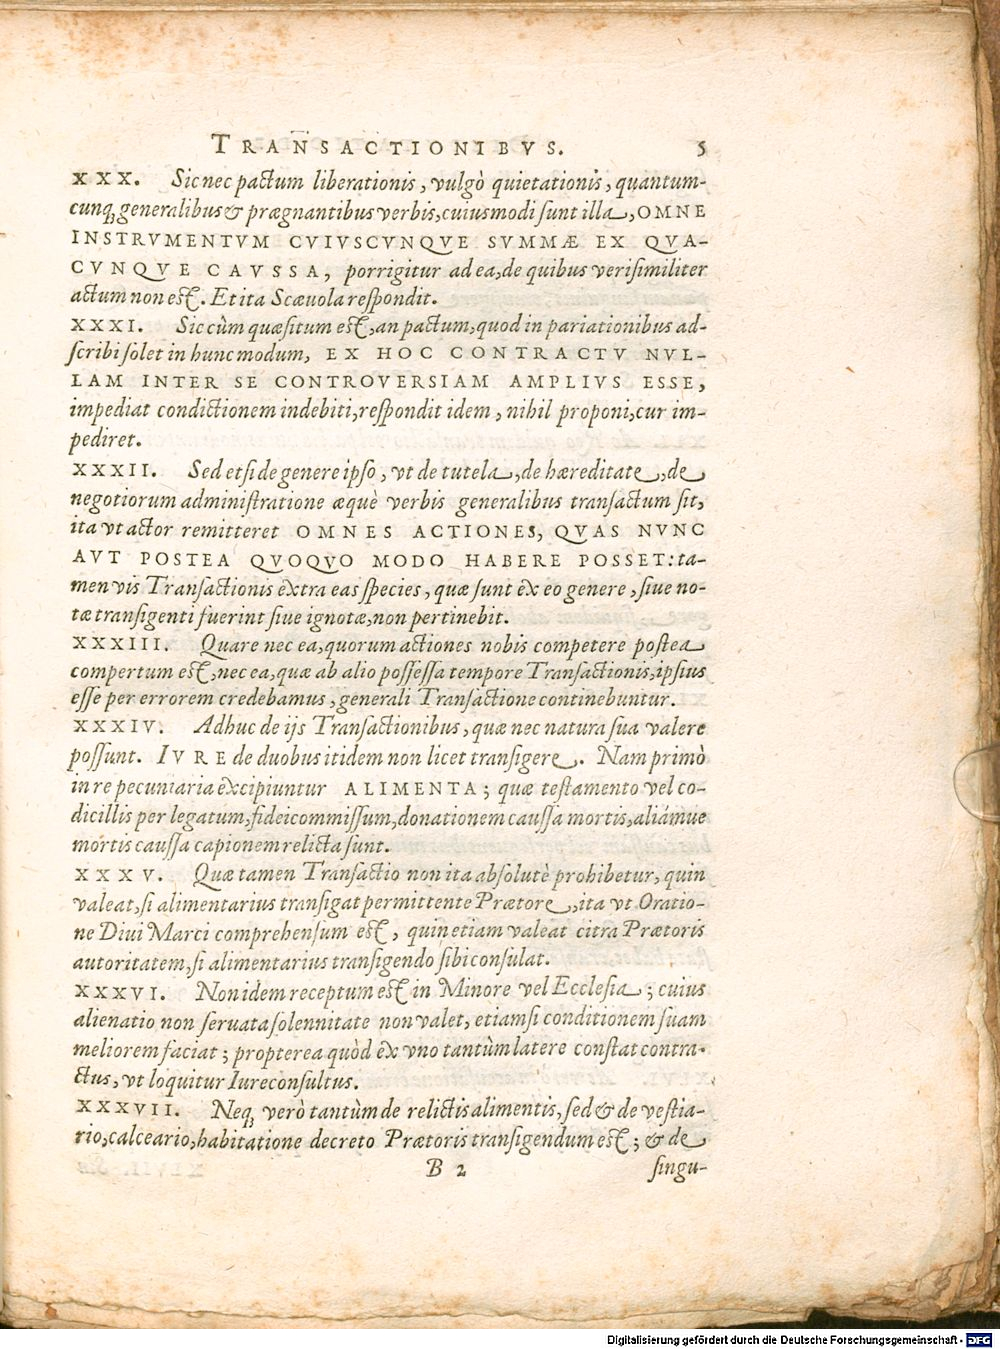 TRANSACTIONIBVS. 5
XXX. Sic nec pactum liberationis, vulgò quietationis, quantum-
cunq; generalibus & prægnantibus verbis, cuiusmodi sunt illa, OMNE
INSTRVMENTVM CVIVSCVNQVE SVMMÆ EX QVA-
CVNQVE CAVSSA, porrigitur ad ea, de quibus verisimiliter
actum non est. Et ita Scæuola respondit.
XXXI. Sic cùm quæsitum est, an pactum, quod in pariationibus ad-
scribi solet in hunc modum, EX HOC CONTRACTV NVL-
LAM INTER SE CONTROVERSIAM AMPLIVS ESSE,
impediat condictionem indebiti, respondit idem, nihil proponi, cur im-
pediret.
XXXII. Sed etsi de genere ipso, vt de tutela, de hæreditate, de
negotiorum administratione æquè verbis generalibus transactum sit,
ita vt actor remitteret OMNES ACTIONES, QVAS NVNC
AVT POSTEA QVOQVO MODO HABERE POSSET: ta-
men vis Transactionis extra eas species, quæ sunt ex eo genere, siue no-
tæ transigenti fuerint siue ignotæ, non pertinebit.
XXXIII. Quare nec ea, quorum actiones nobis competere postea
compertum est, nec ea, quæ ab alio possessa tempore Transactionis, ipsius
esse per errorem credebamus, generali Transactione continebuntur.
XXXIV. Adhuc de ijs Transactionibus, quæ nec natura sua valere
possunt. IVRE de duobus itidem non licet transigere. Nam primò
in re pecuniaria excipiuntur ALIMENTA; quæ testamento vel co-
dicillis per legatum, fideicommissum, donationem caussa mortis, aliámue
mortis caussa capionem relicta sunt.
XXXV. Quæ tamen Transactio non ita absolutè prohibetur, quin
valeat, si alimentarius transigat permittente Prætore, ita vt Oratio-
ne Diui Marci comprehensum est, quin etiam valeat citra Prætoris
autoritatem, si alimentarius transigendo sibi consulat.
XXXVI. Non idem receptum est in Minore vel Ecclesia; cuius
alienatio non seruata solennitate non valet, etiamsi conditionem suam
meliorem faciat; propterea quòd ex vno tantùm latere constat contra-
ctus, vt loquitur Iureconsultus.
XXXVII. Neq; verò tantùm de relictis alimentis, sed & de vestia-
rio, calceario, habitatione decreto Prætoris transigendum est; & de
B 2 singu-
Digitalisierung gefördert durch die Deutsche Forschungsgemeinschaft - DFG